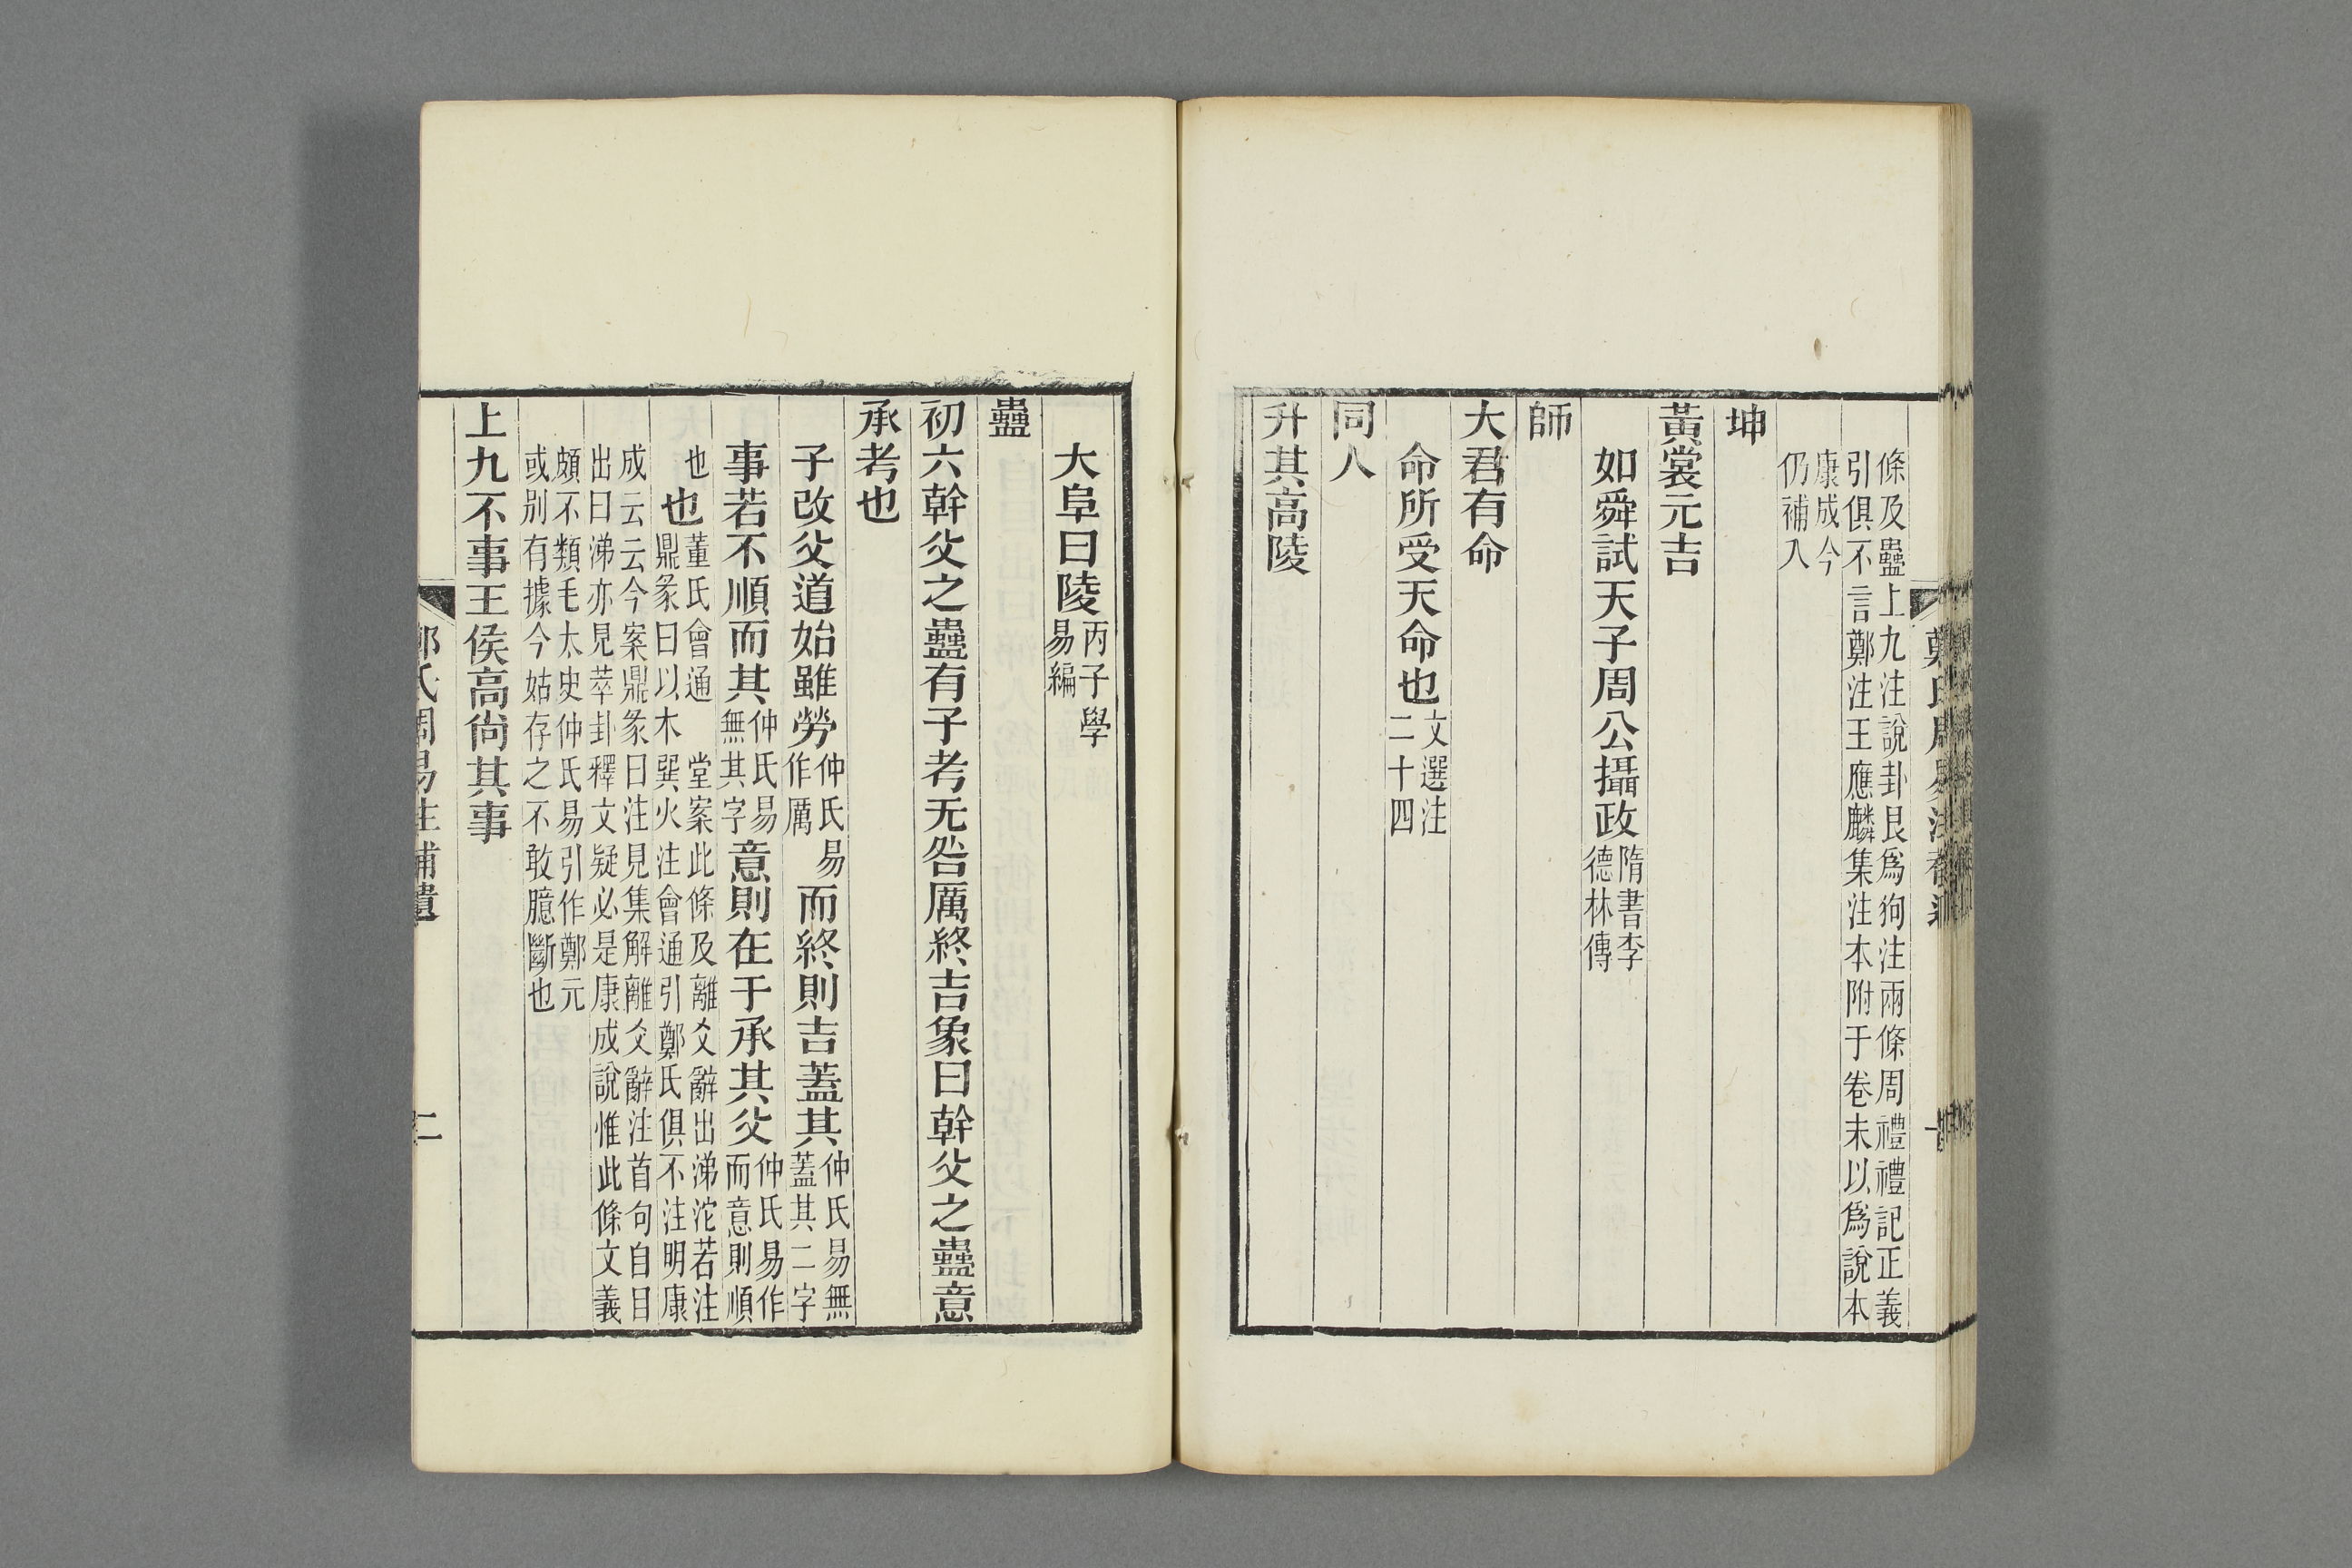 條及蠱上九注說卦艮爲狗注兩條周禮禮記正義
引俱不言鄭注王應麟集注本附于卷末以爲說本
康成今
仍補入
坤
黃裳元吉
如舜試天子周公攝政隋書李
德林傳
師
大君有命
命所受天命也文選注
二十四
同人
升其高陵
大阜曰陵丙子學
易編
蠱
初六幹父之蠱有子考无咎厲終吉象曰幹父之蠱意
承考也
子改父道始雖勞仲氏易
作厲而終則吉蓋其仲氏易無
蓋其二字
事若不順而其仲氏易
無其字意則在于承其父仲氏易作
而意則順
也
也董氏會通 堂案此條及離爻辭出涕沱若注
鼎彖曰以木巽火注會通引鄭氏俱不注明康
成云云今案鼎彖曰注見集解離爻辭注首句自目
出曰涕亦見萃卦釋文疑必是康成說惟此條文義
頗不類毛太史仲氏易引作鄭元
或別有據今姑存之不敢臆斷也
上九不事王侯高尙其事
鄭氏周易注補遺
二